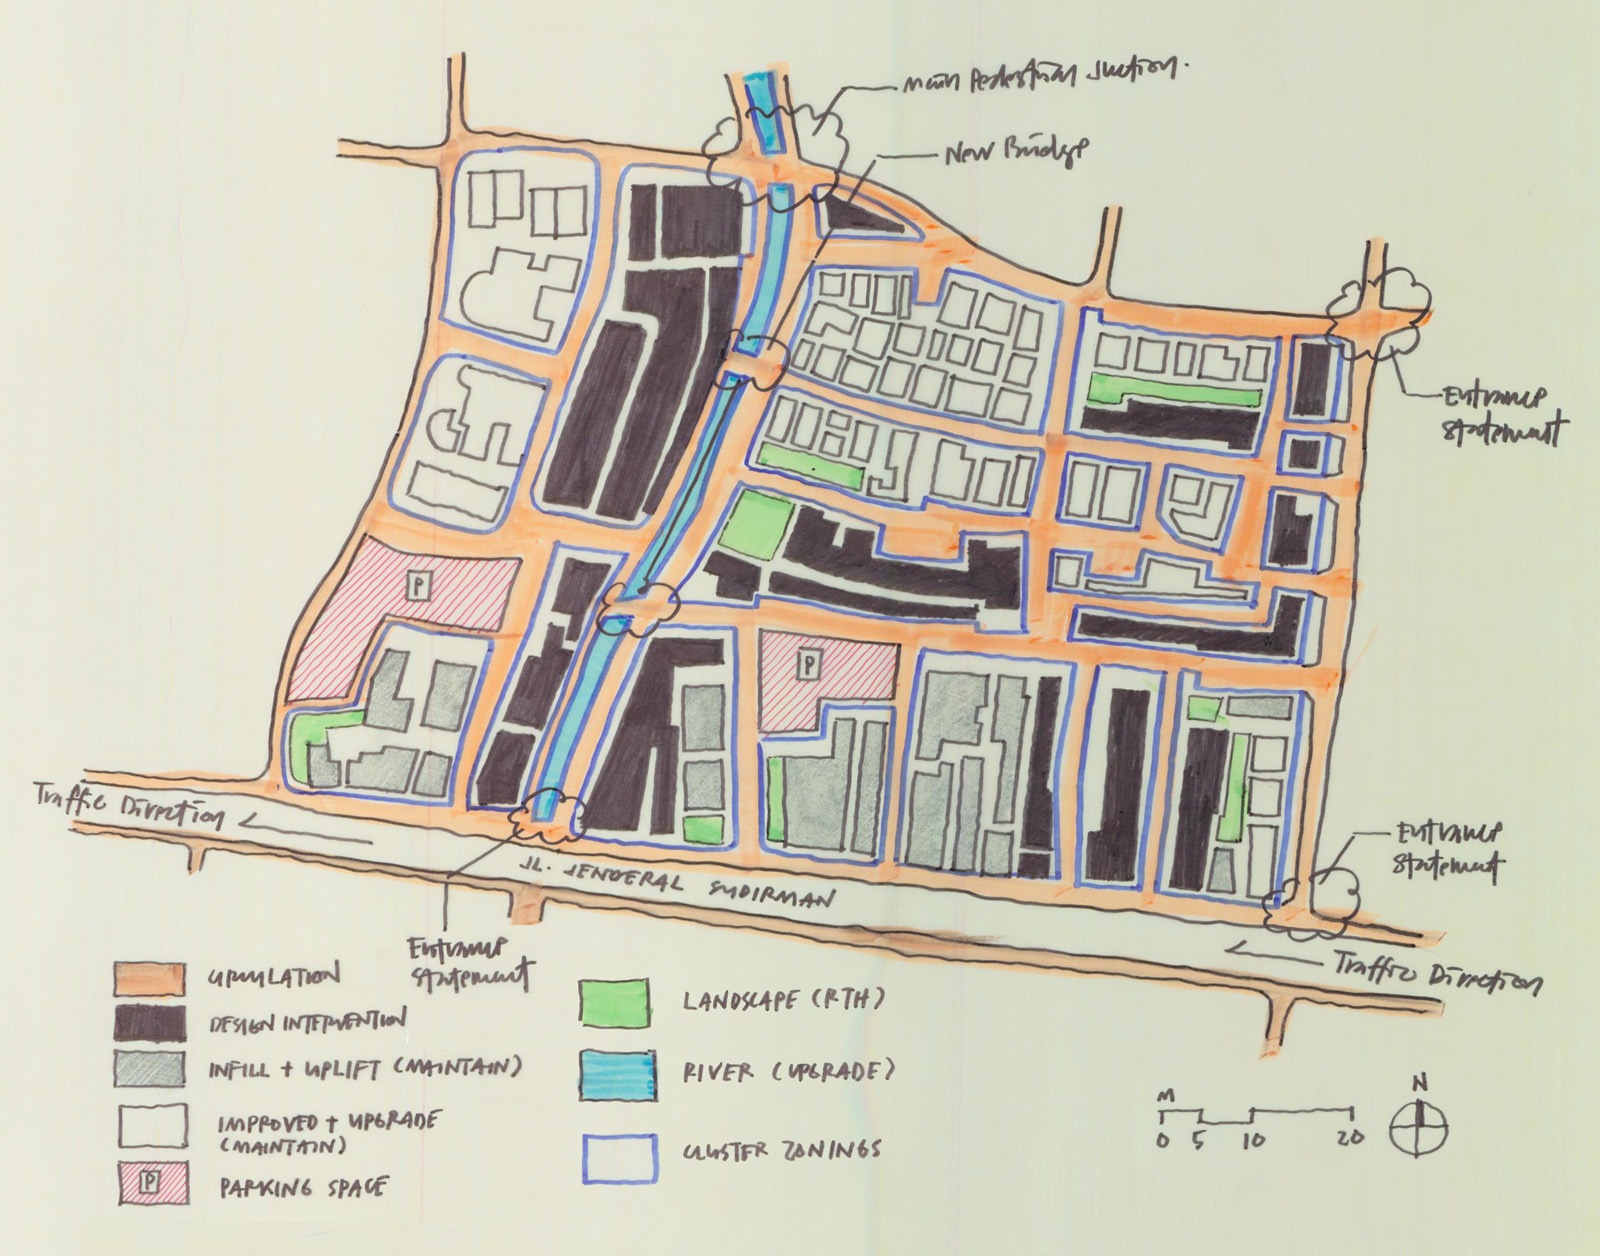 Main Pedestrian Juction.
New Bridge
Entrance
Statement
P
P
Traffic Direction
JL. JENDERAL SUDIRMAN
Entrance
Statement
Entrance
Statement
Traffic Direction
DESIGN INTERVENTION
INFILL + UPLIFT (MAINTAIN)
IMPROVED + UPGRADE
(MAINTAIN)
P
PARKING SPACE
LANDSCAPE (RTH)
RIVER (UPGRADE)
CLUSTER ZONINGS
M
0 5 10 20
N